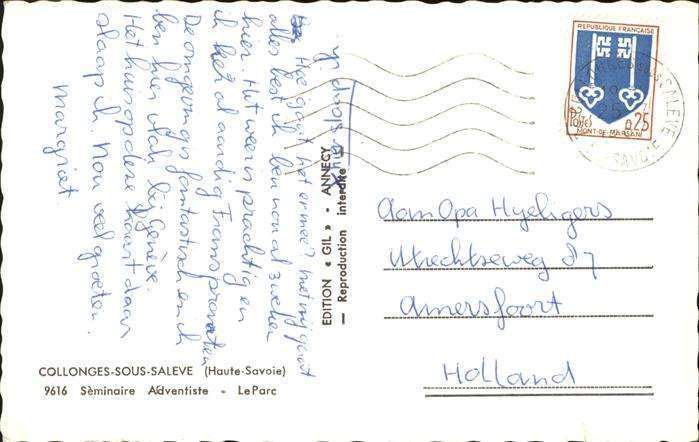 Hoe gaat het ermee? met mij gaat
alles best ik ben nou al 3 weken
hier. Het weer is prachtig en
ik leer al aardig Frans praten
De omgeving is fantastisch en ik
ben hier vlak bij Genève.
Het huis op deze kaart daar
slaap ik. Nou veel groeten.
Margriet.
ik slaap hier
EDITION « GIL » - ANNECY
— Reproduction interdite
REPUBLIQUE FRANÇAISE
POSTES
0,25
MONT-DE-MARSAN
SALEVE
SAVOIE
Aan Opa Hyeligers
Utrechtseweg 87
Amersfoort
Holland
COLLONGES-SOUS-SALEVE (Haute-Savoie)
9616 Sèminaire Adventiste - Le Parc